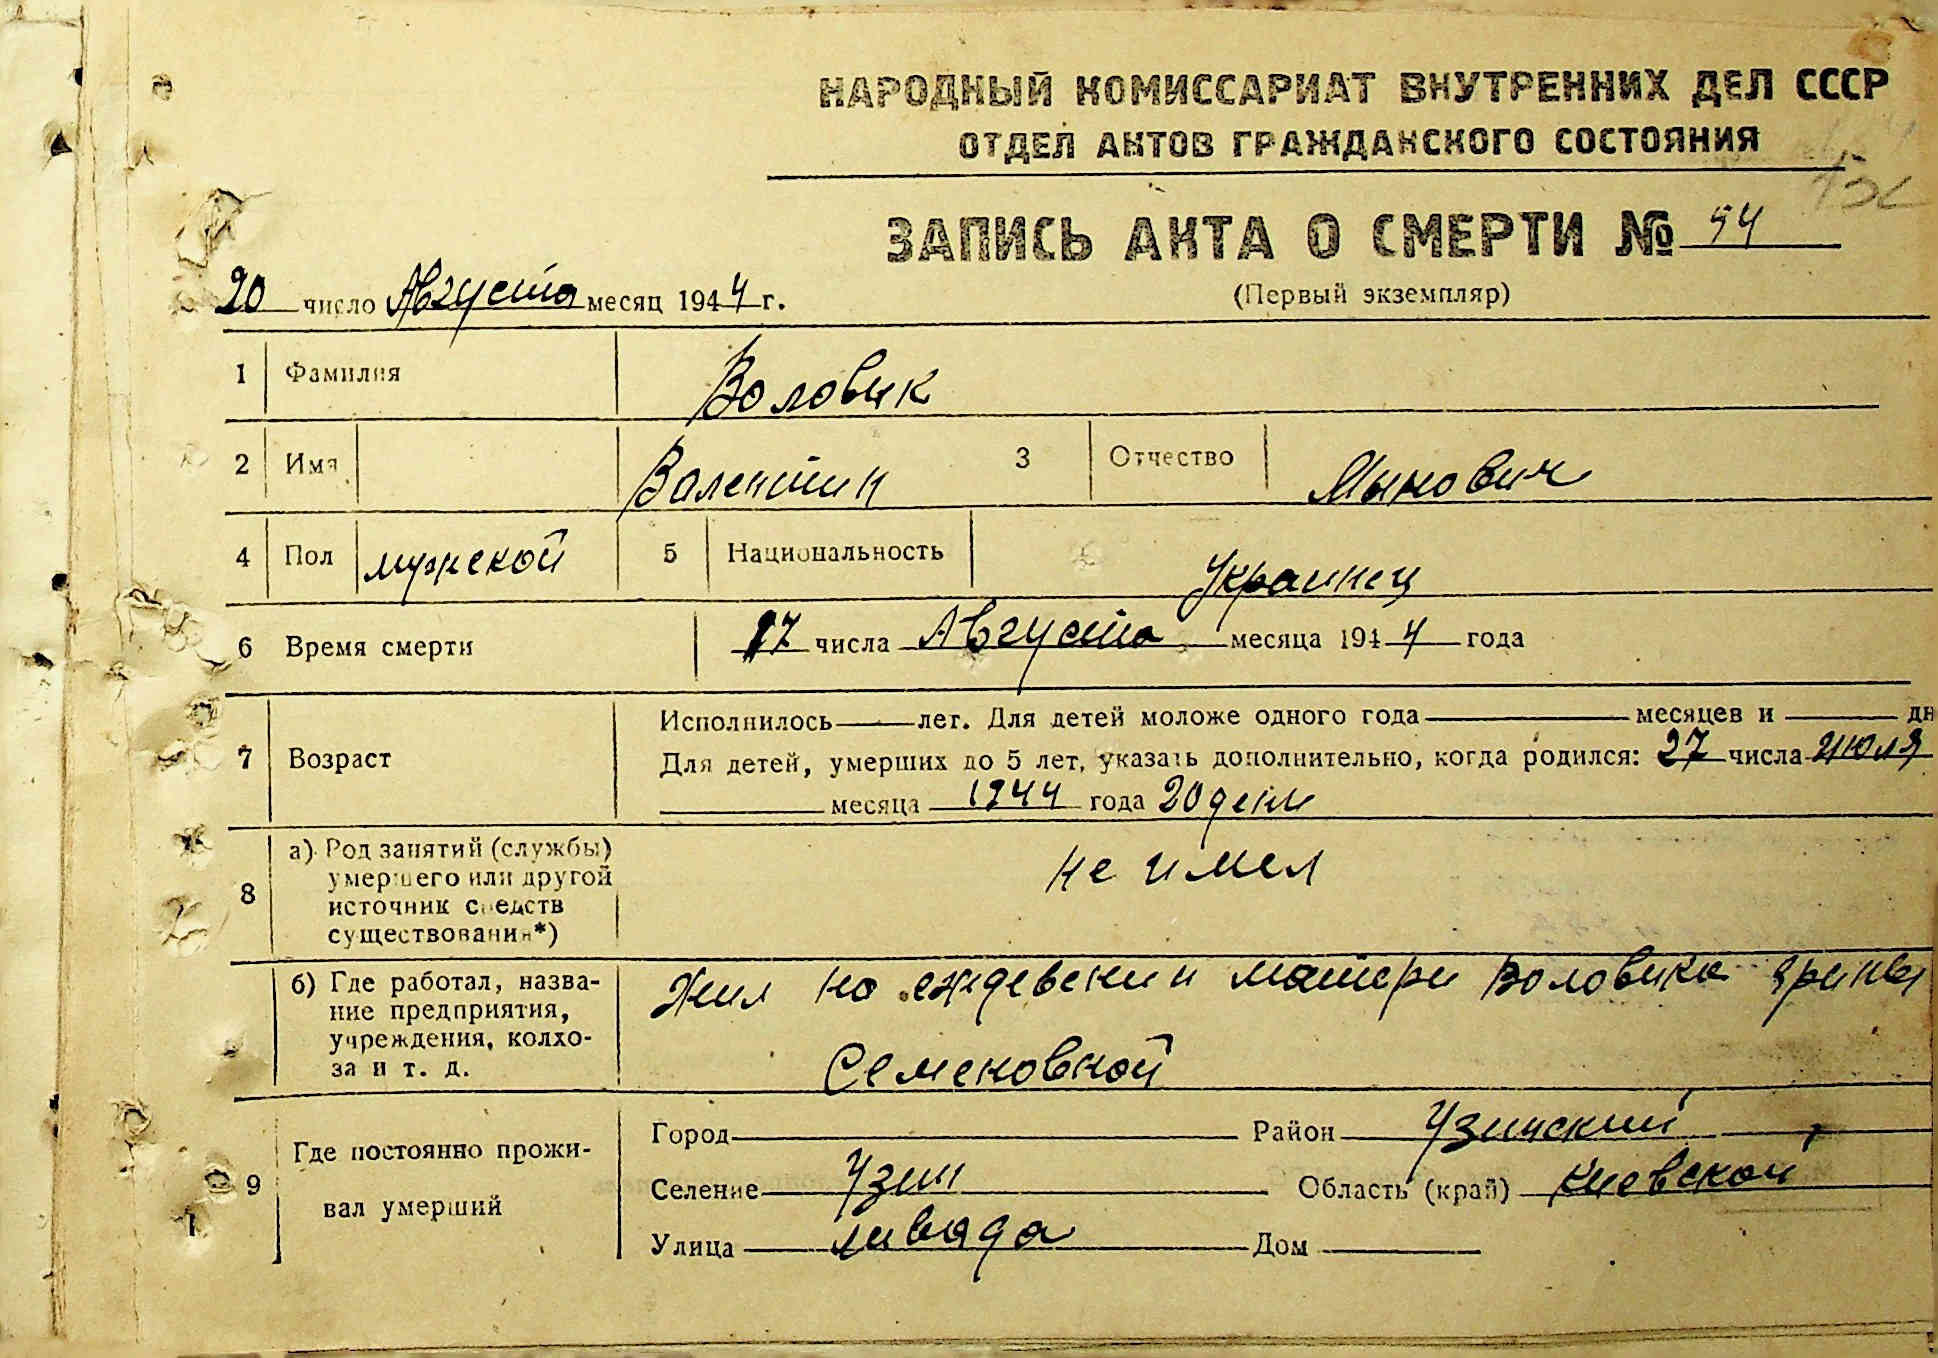 НАРОДНЫЙ КОМИССАРИАТ ВНУТРЕННИХ ДЕЛ СССР
ОТДЕЛ АКТОВ ГРАЖДАНСКОГО СОСТОЯНИЯ
ЗАПИСЬ АКТА О СМЕРТИ № 54
(Первый экземпляр)
20 число Августа месяц 1944 г.
1 Фамилия Воловик
2 Имя Валентин 3 Отчество
4 Пол мужской 5 Национальность Украинец
6 Время смерти 17 числа Августа месяца 1944 года
7 Возраст
Исполнилось лет. Для детей моложе одного года месяцев и дн
Для детей, умерших до 5 лет, указать дополнительно, когда родился: 27 числа июля
месяца 1944 года 20 ден
8 а) Род занятий (службы)
умершего или другой
источник средств
существования*)
не имел
б) Где работал, назва-
ние предприятия,
учреждения, колхо-
за и т. д.
Жил на матери Воловик
Семеновной
9 Где постоянно прожи-
вал умерший
Город Район Узинский
Селение Узин Область (край) Киевской
Улица Левада Дом